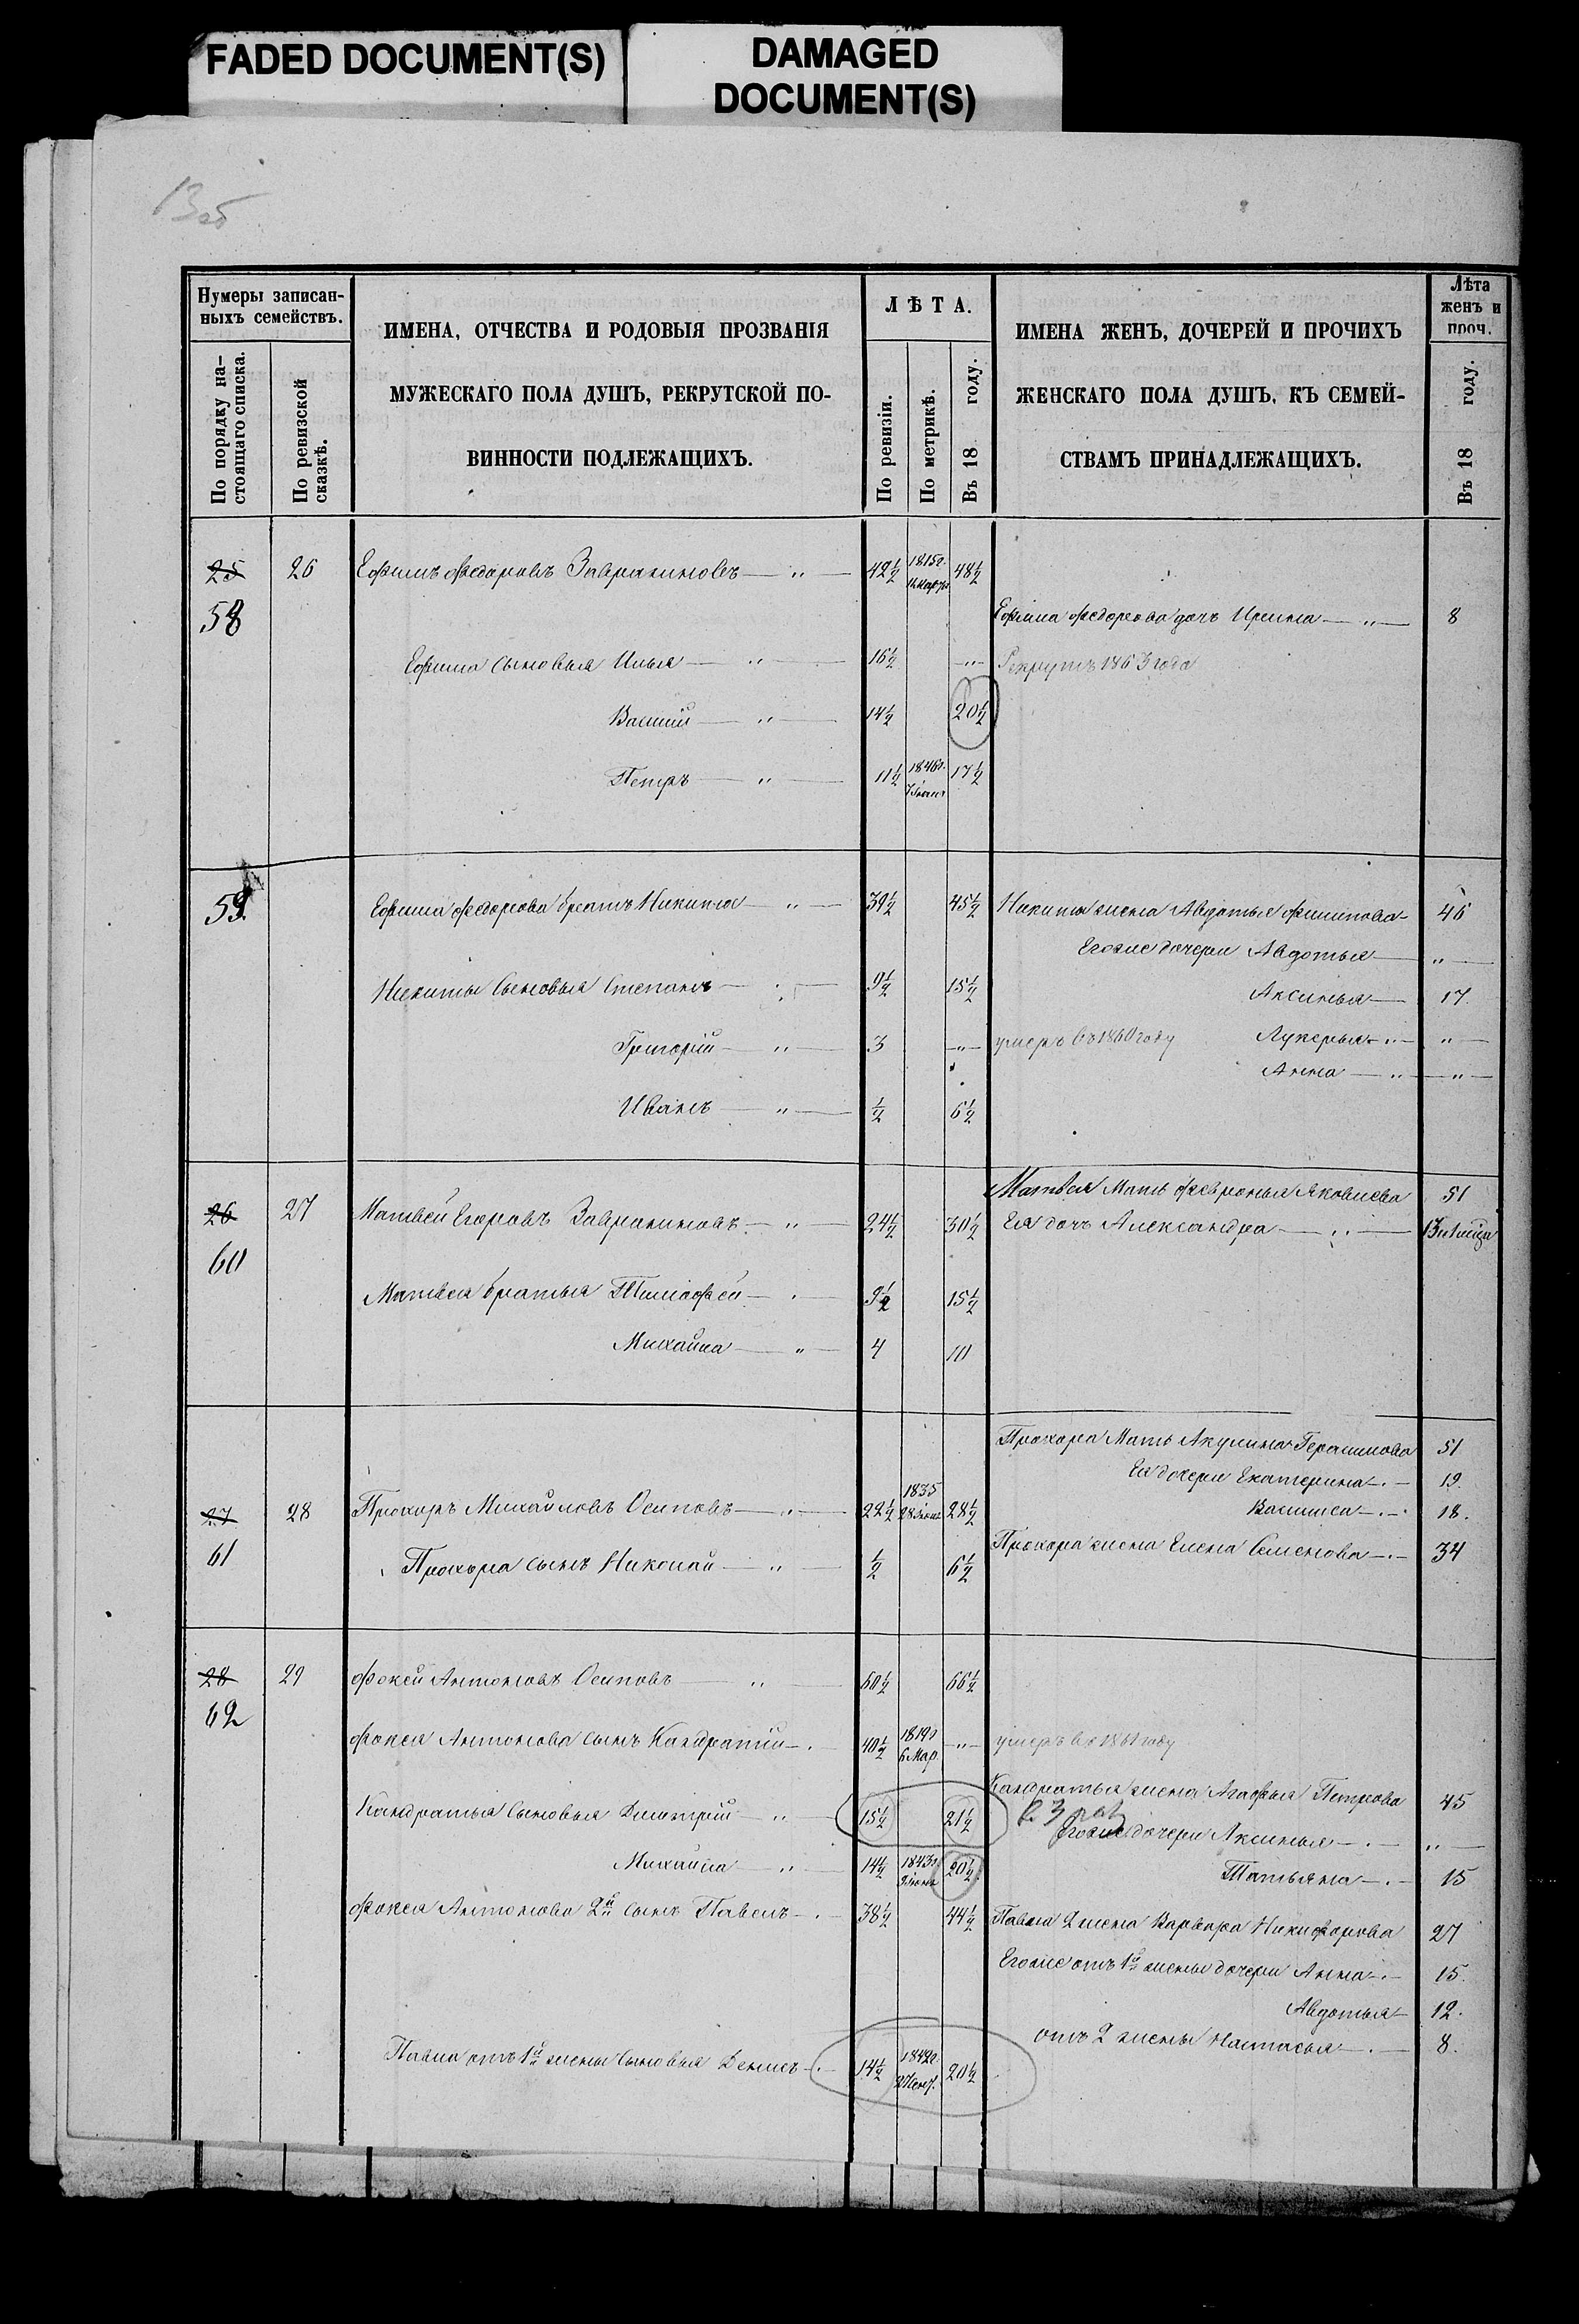 FADED DOCUMENT(S)
DAMAGED
DOCUMENT(S)
13 об
Нумеры записан-
ныхъ семействъ.
По порядку на-
стоящаго списка.
По ревизской
сказкѣ.
ИМЕНА, ОТЧЕСТВА И РОДОВЫЯ ПРОЗВАНІЯ
МУЖЕСКАГО ПОЛА ДУШЪ, РЕКРУТСКОЙ ПО-
ВИННОСТИ ПОДЛЕЖАЩИХЪ.
ЛѢТА.
По ревизіи.
По метрикѣ.
Въ 18 году.
ИМЕНА ЖЕНЪ, ДОЧЕРЕЙ И ПРОЧИХЪ
ЖЕНСКАГО ПОЛА ДУШЪ, КЪ СЕМЕЙ-
СТВАМЪ ПРИНАДЛЕЖАЩИХЪ.
Лѣта
женъ и
проч.
Въ 18 году.
25 26 Ефимъ Федоровъ 42½ 1815г. 48½
58 Ефима Федорова дочь Ирина 8
Ефима сыновья Илья 16½ Рекрутъ 1863 года
Василій 14½ 20½
Петръ 11½ 1846г. 17½
59. Ефима Федорова братъ Никита 39½ 45½ Никиты жена Авдотья Филипова 46
Егоже дочери Авдотья
Никиты сыновья Степанъ 9½ 15½ Аксинья 17.
Григорій 3 умеръ въ 1860 году Лукерья
Анна
Иванъ ½ 6½
Матвея Мать Февронья Яковлева 51
26 27 Матвей Егоровъ 24½ 30½ Ея дочь Александра
60
Матвея братья Тимофей 9½ 15½
Михайла 4 10
Прохора Мать Акулина Герасимова 51
Ея дочери Екатерина 19.
27 28 Прохоръ Михайловъ Осиповъ 22½ 1835 28½ Василиса 18.
61 Прохора сынъ Николай ½ 6½ Прохора жена Елена Семенова 34
28 29 Фокей Антоновъ Осиповъ 60½ 66½
62
Фокея Антонова сынъ Кандратій 40½ 1819г 6 Мар умеръ въ 1861 году
Кандратья жена Агафья Петрова 45
Кандратья сыновья Дмитрій 15½ 21½ Егоже дочери Аксинья
Михайла 14½ 1843г. 20½ Татьяна 15
Фокея Антонова 2й сынъ Павелъ 38½ 44½ Павла 2 жена Варвара Никифорова 27
Егоже отъ 1й жены дочери Анна 15.
Авдотья 12.
отъ 2 жены Настасья 8.
Павла отъ 1й жены сыновья Денисъ 14½ 1842г. 20½